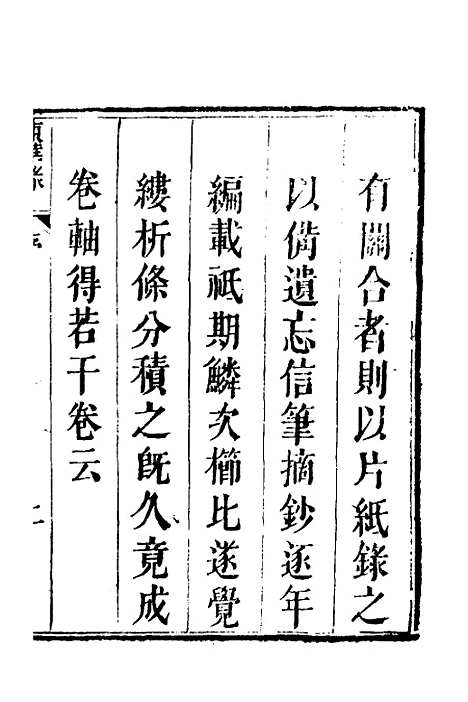 有關合者則以片紙錄之
以備遺忘信筆摘鈔逐年
編載祗期鱗次櫛比遂覺
縷析條分積之旣久竟成
卷軸得若干卷云
序
二